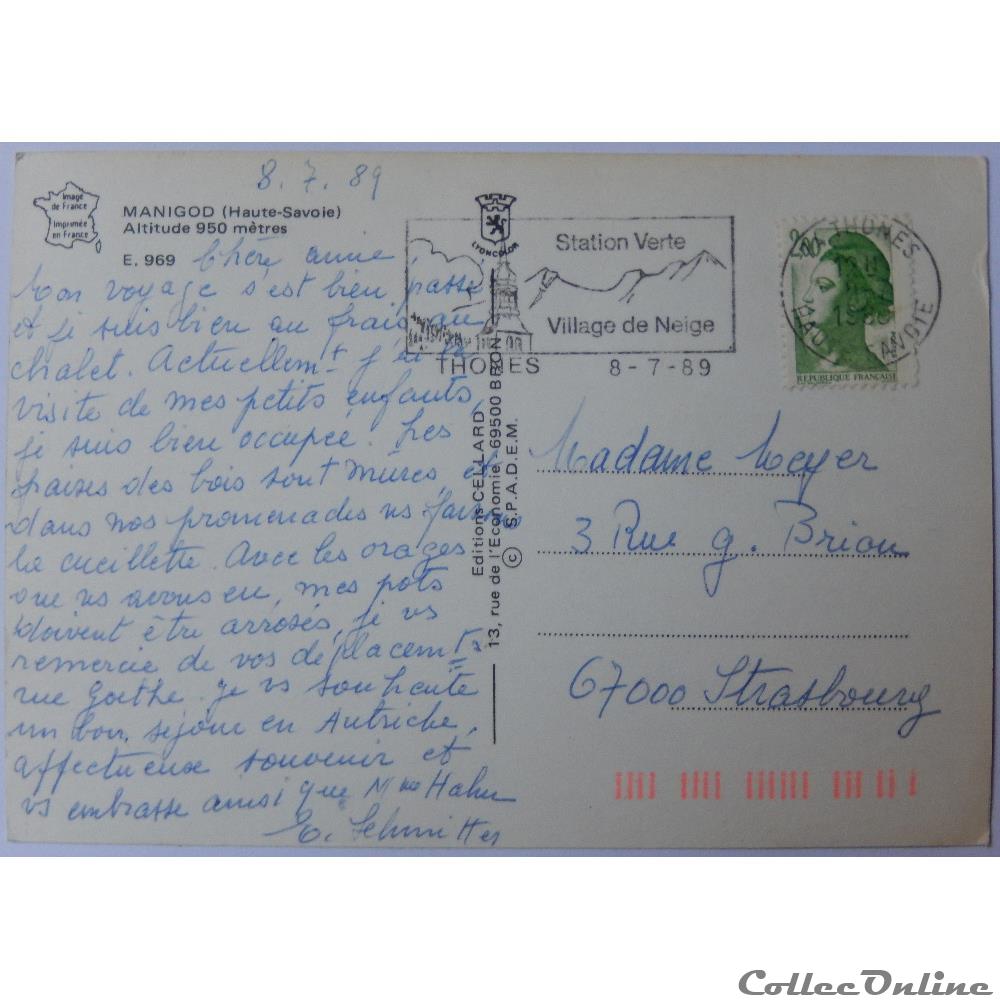 8.7.89
Image
de France
Imprimée
en France
MANIGOD (Haute-Savoie)
Altitude 950 mètres
E. 969
Chère amie
Mon voyage s'est bien passé
et je suis bien au frais au
chalet. Actuellemt j'ai la
visite de mes petits enfants,
je suis bien occupée. Les
fraises des bois sont mûres, et
dans nos promenades ns faisons
la cueillette. Avec les orages
que ns avons eu, mes pots
doivent être arrosés, je vs
remercie de vos déplacemts
rue Goethe. Je vs souhaite
un bon séjour en Autriche,
affectueux souvenir et
vs embrasse ainsi que Mme Hahn
E. Schmitter
LYONCOLOR
Station Verte
Village de Neige
THONES 8-7-89
Editions CELLARD
13, rue de l'Economie, 69500 BRON
© S.P.A.D.E.M.
2,00
REPUBLIQUE FRANÇAISE
THONES
Madame Meyer
3 Rue g. Brion
67000 Strasbourg
CollecOnline